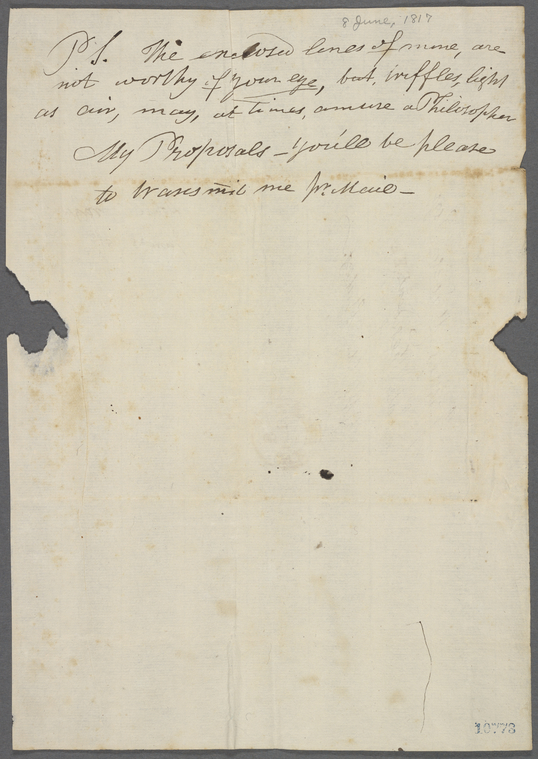 8 June, 1817
P.S. The enclosed lines of mine, are
not worthy of your eye, but, triffles, light
as air, may, at times, amuse a Philosopher
My Proposals – you'll be please
to transmit me pr. Mail –
10773